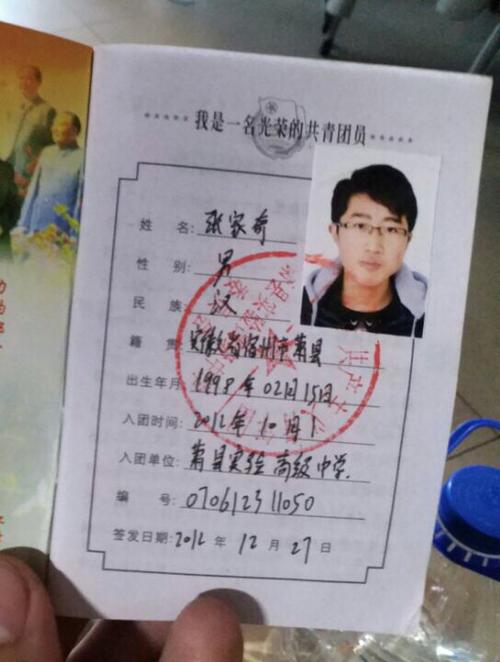 我是一名光荣的共青团员
姓 名: 张家奇
性 别: 男
民 族: 汉
籍 贯: 安徽省宿州市萧县
出生年月: 1998年02月15日
入团时间: 2012年10月1
入团单位: 萧县实验高级中学.
编 号: 070612311050
签发日期: 2012年12月27日